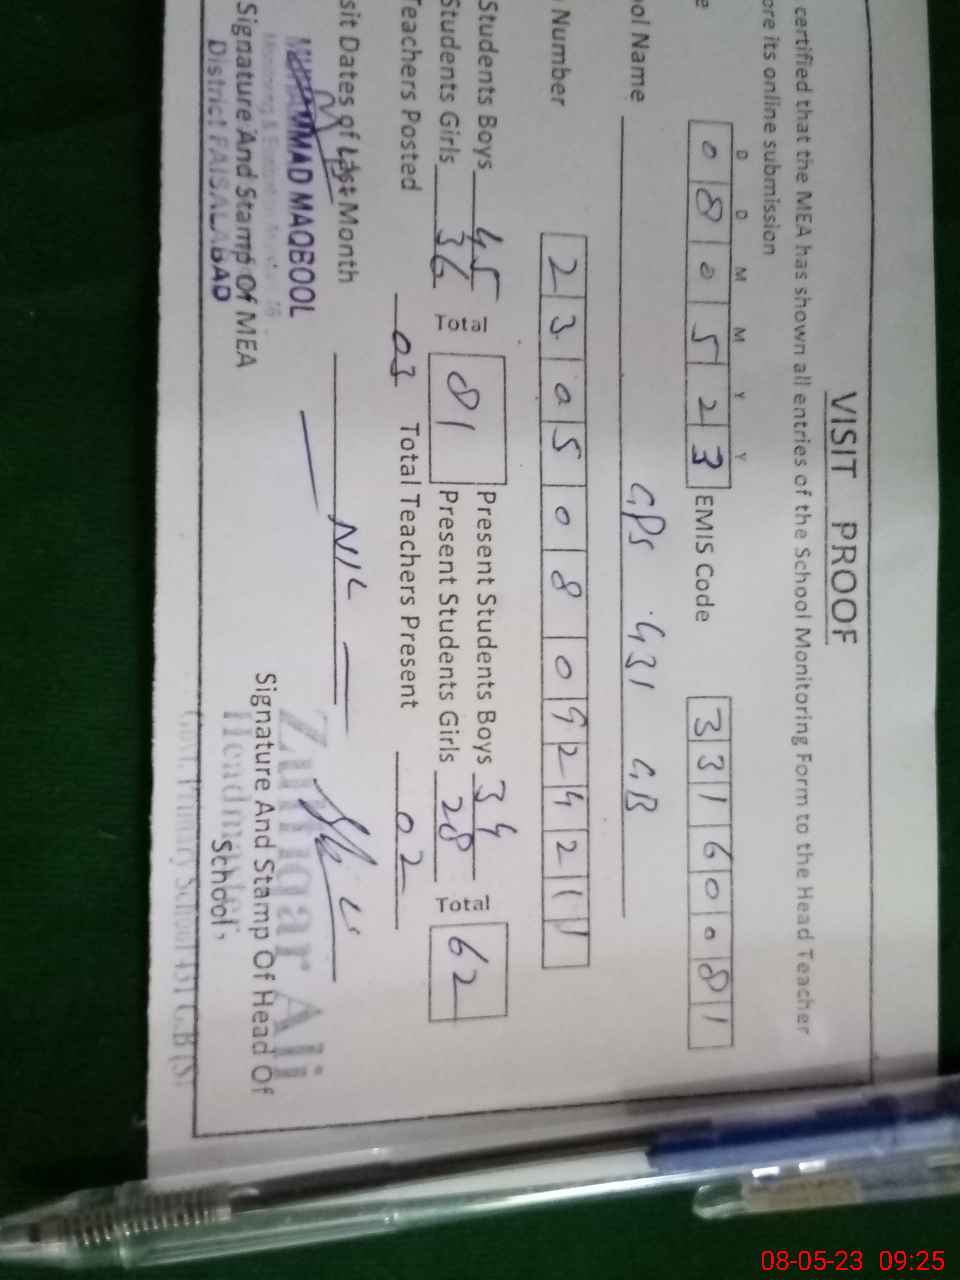 VISIT PROOF
certified that the MEA has shown all entries of the School Monitoring Form to the Head Teacher
ore its online submission
D D M M Y Y
e 0 8 0 5 2 3 EMIS Code 3 3 1 6 0 0 8 1
ool Name GPS 431 GB
Number 2 3 0 5 0 8 0 9 2 4 2 1 1
Students Boys 45 Total 81 Present Students Boys 34 Total 62
Students Girls 36 Present Students Girls 28
Teachers Posted 03 Total Teachers Present 02
sit Dates of Last Month NIL
MUHAMMAD MAQBOOL
Signature And Stamp Of MEA
District FAISALABAD
Zulfiqar Ali
Signature And Stamp Of Head Of
Headmaster
School
Govt. Primary School 431 G.B (S)
08-05-23 09:25